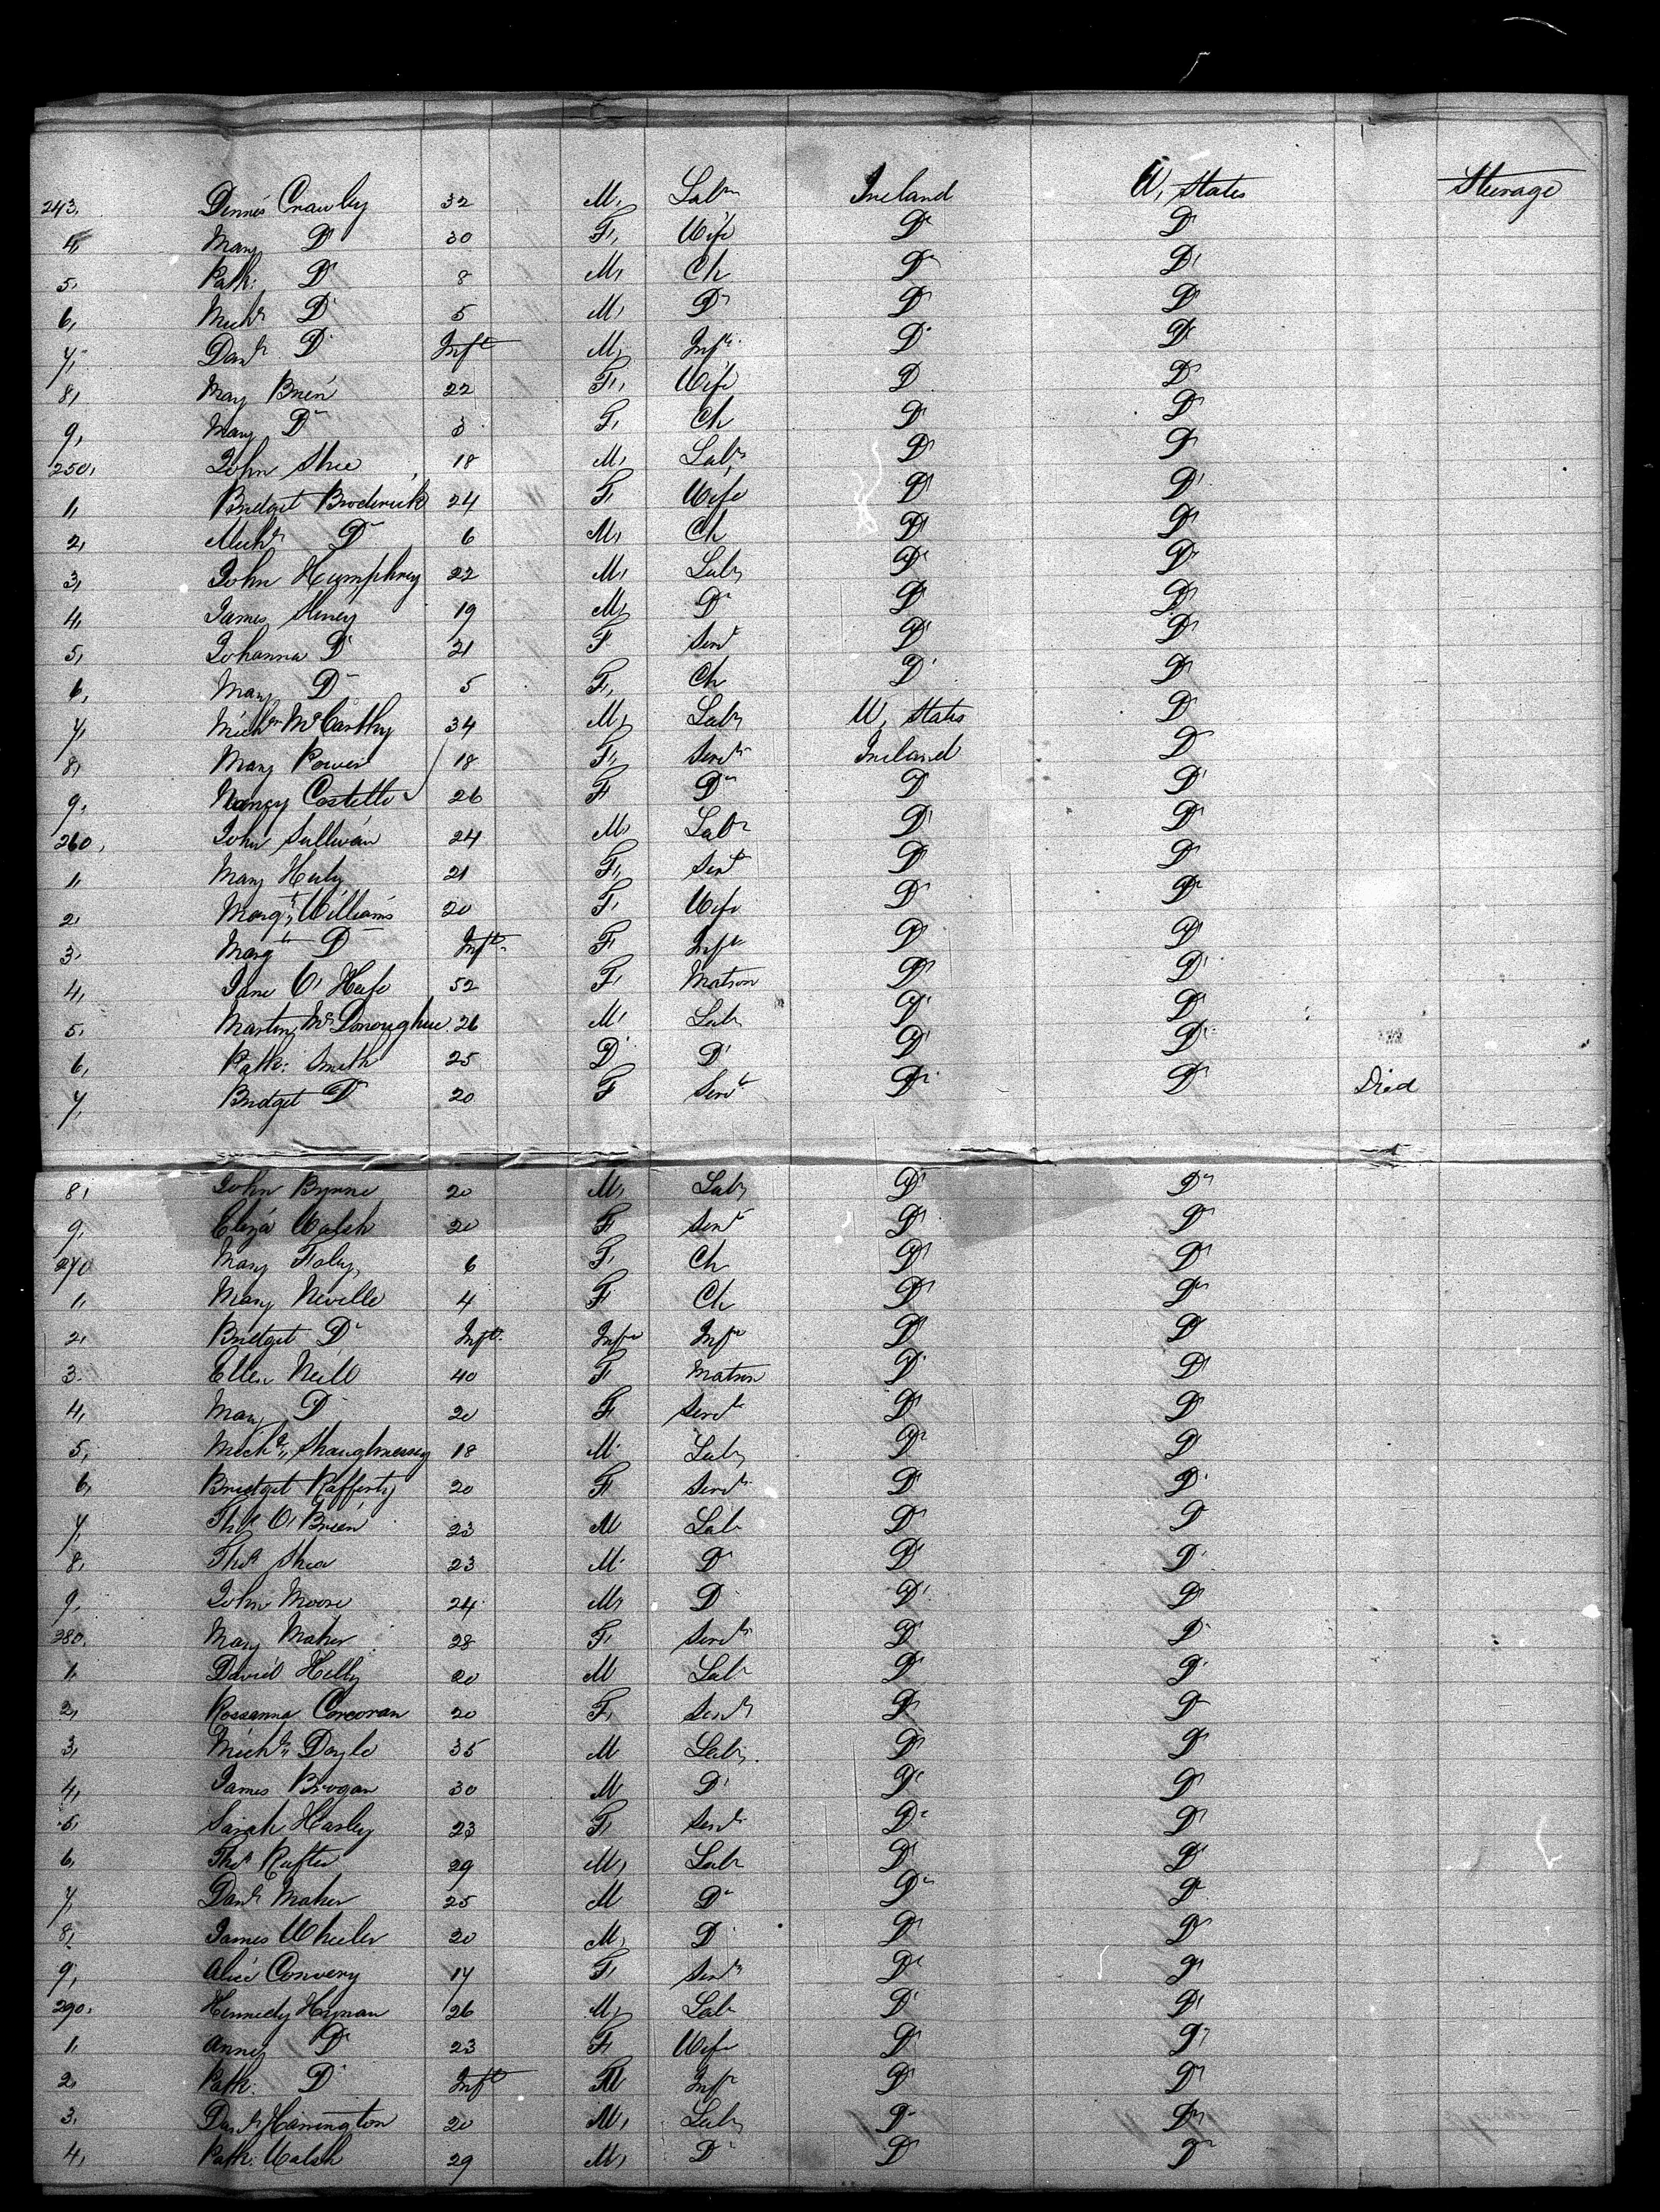 243, Dennis Crawley 32 M, Labr Ireland U, States Steerage
4, Mary Do 30 F, Wife Do Do
5, Patk: Do 8 M, Ch Do Do
6, Michl Do 5 M, Do Do Do
7, Danl Do Inft M, Inft Do Do
8, Mary Brien 22 F, Wife Do Do
9, Mary Do 3 F, Ch Do Do
250, John Shee 18 M, Labr Do Do
1, Bridget Broderick 24 F Wife Do Do
2, Michl Do 6 M, Ch Do Do
3, John Humphrey 22 M, Labr Do Do
4, James 19 M, Do Do Do
5, Johanna Do 21 F Servt Do Do
6, Mary Do 5 F, Ch Do Do
7, Michl McCarthy 34 M, Labr U, States Do
8, Mary Power 18 F, Servt Ireland Do
9, Nancy Costello 26 F Do Do Do
260, John Sullivan 24 M, Labr Do Do
1, Mary 21 F, Servt Do Do
2, Margt Williams 20 F, Wife Do Do
3, Margt Do Inft F Inft Do Do
4, Jane O'Keefe 52 F, Matron Do Do
5, Martin McDonoughue 26 M, Labr Do Do
6, Patk: Smith 25 Do Do Do Do
7, Bridget Do 20 F Servt Do Do Died
8, John Byrne 20 M, Labr Do Do
9, Eliza Walsh 20 F Servt Do Do
270 Mary Foley, 6 F, Ch Do Do
1, Mary Neville 4 F Ch Do Do
2, Bridget Do Inft Inft Inft Do Do
3. Ellen Neill 40 F Matron Do Do
4, Mary Do 20 F Servt Do Do
5, Michl Shaughnessy 18 M Labr Do Do
6, Bridget Rafferty 20 F Servt Do Do
7, Thos O'Brien 23 M Labr Do Do
8, Thos Shea 23 M Do Do Do
9, John Moore 24 M, Do Do Do
380. Mary Maher 28 F, Servt Do Do
1, David Kelly 20 M Labr Do Do
2, Rossanna Corcoran 20 F, Servt Do Do
3, Michl Doyle 35 M Labr Do Do
4, James Brogan 30 M Do Do Do
5, Sarah Harley 23 F, Servt Do Do
6, Thos Rafter 29 M, Labr Do Do
7, Danl Maher 25 M Do Do Do
8, James Wheeler 20 M, Do Do Do
9, Alice Convery 17 F, Servt Do Do
290, Kennedy Hynan 26 M, Labr Do Do
1, Anney Do 23 F, Wife Do Do
2, Patk: Do Inft M Inft Do Do
3, Danl Harrington 20 M, Labr Do Do
4, Patk: Walsh 29 M, Do Do Do